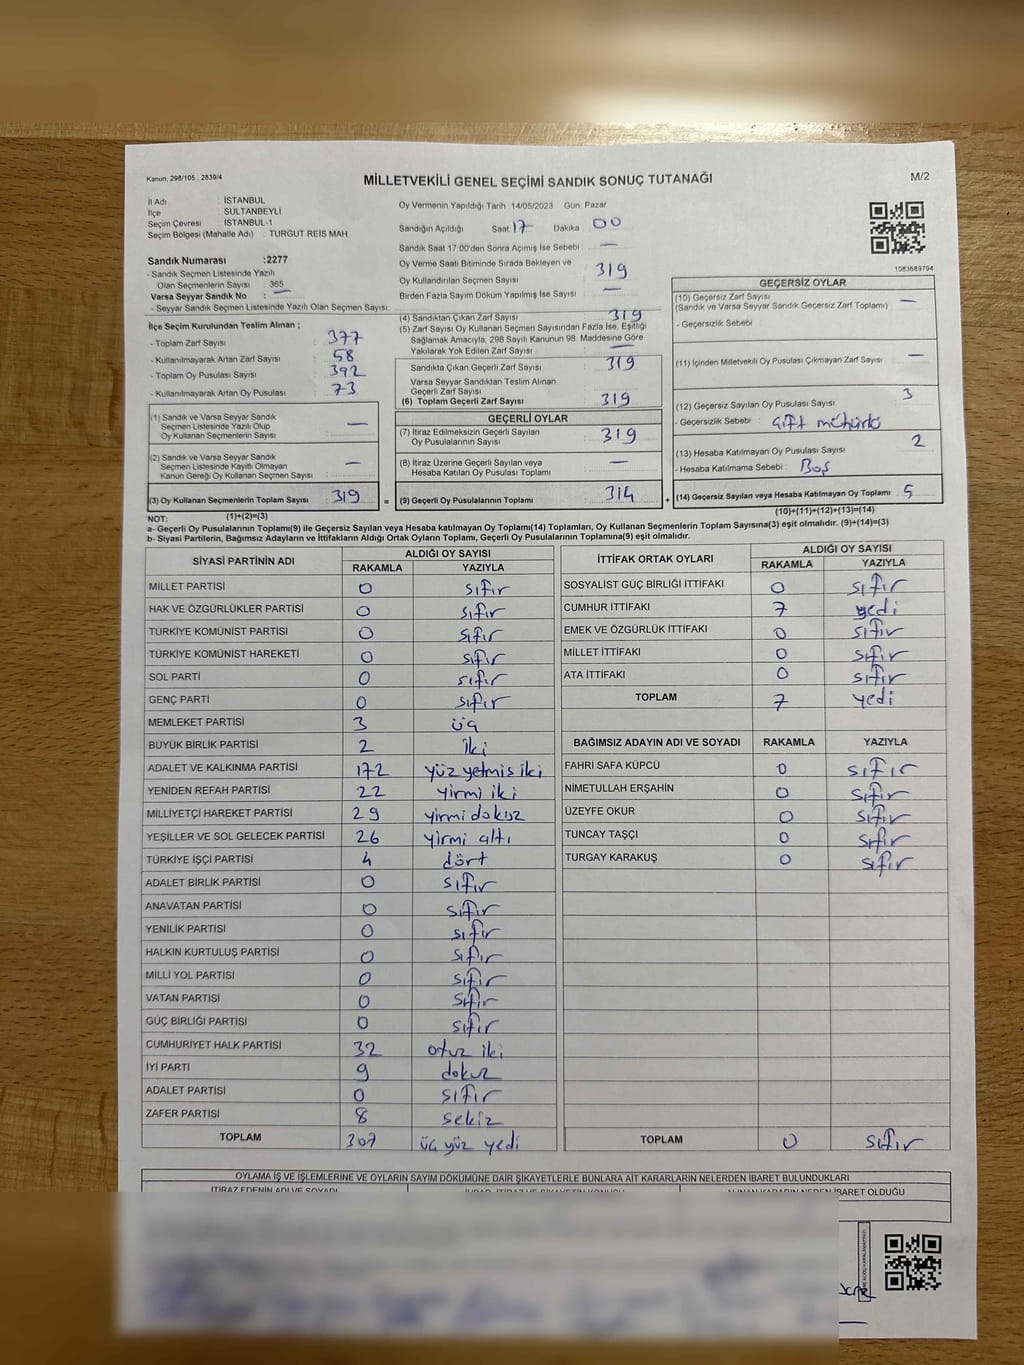 Kanun: 298/105 , 2839/4
MİLLETVEKİLİ GENEL SEÇİMİ SANDIK SONUÇ TUTANAĞI
M/2
İl Adı : İSTANBUL
İlçe : SULTANBEYLİ
Seçim Çevresi : İSTANBUL-1
Seçim Bölgesi (Mahalle Adı) : TURGUT REİS MAH.
Oy Vermenin Yapıldığı Tarih :14/05/2023 Gün: Pazar
Sandığın Açıldığı Saat: 17 Dakika: 00
Sandık Saat 17:00'den Sonra Açılmış İse Sebebi —
Oy Verme Saati Bitiminde Sırada Bekleyen ve
Oy Kullandırılan Seçmen Sayısı 319
Birden Fazla Sayım Döküm Yapılmış İse Sayısı —
1083689794
Sandık Numarası :2277
- Sandık Seçmen Listesinde Yazılı
Olan Seçmenlerin Sayısı : 365
Varsa Seyyar Sandık No : —
- Seyyar Sandık Seçmen Listesinde Yazılı Olan Seçmen Sayısı:
İlçe Seçim Kurulundan Teslim Alınan ;
- Toplam Zarf Sayısı : 377
- Kullanılmayarak Artan Zarf Sayısı : 58
- Toplam Oy Pusulası Sayısı : 392
- Kullanılmayarak Artan Oy Pusulası : 73
(1) Sandık ve Varsa Seyyar Sandık
Seçmen Listesinde Yazılı Olup
Oy Kullanan Seçmenlerin Sayısı : —
(2) Sandık ve Varsa Seyyar Sandık
Seçmen Listesinde Kayıtlı Olmayan
Kanun Gereği Oy Kullanan Seçmen Sayısı : —
(3) Oy Kullanan Seçmenlerin Toplam Sayısı : 319
(1)+(2)=(3)
(4) Sandıktan Çıkan Zarf Sayısı : 319
(5) Zarf Sayısı Oy Kullanan Seçmen Sayısından Fazla İse, Eşitliği
Sağlamak Amacıyla; 298 Sayılı Kanunun 98. Maddesine Göre
Yakılarak Yok Edilen Zarf Sayısı : —
Sandıkta Çıkan Geçerli Zarf Sayısı : 319
Varsa Seyyar Sandıktan Teslim Alınan
Geçerli Zarf Sayısı
(6) Toplam Geçerli Zarf Sayısı : 319
GEÇERLİ OYLAR
(7) İtiraz Edilmeksizin Geçerli Sayılan
Oy Pusulalarının Sayısı : 319
(8) İtiraz Üzerine Geçerli Sayılan veya
Hesaba Katılan Oy Pusulası Toplamı : —
= (9) Geçerli Oy Pusulalarının Toplamı : 314
GEÇERSİZ OYLAR
(10) Geçersiz Zarf Sayısı
(Sandık ve Varsa Seyyar Sandık Geçersiz Zarf Toplamı) : —
- Geçersizlik Sebebi :
(11) İçinden Milletvekili Oy Pusulası Çıkmayan Zarf Sayısı : —
(12) Geçersiz Sayılan Oy Pusulası Sayısı : 3
- Geçersizlik Sebebi : çift mühürlü
(13) Hesaba Katılmayan Oy Pusulası Sayısı : 2
- Hesaba Katılmama Sebebi : Boş
+ (14) Geçersiz Sayılan veya Hesaba Katılmayan Oy Toplamı : 5
(10)+(11)+(12)+(13)=(14)
NOT:
a- Geçerli Oy Pusulalarının Toplamı(9) ile Geçersiz Sayılan veya Hesaba katılmayan Oy Toplamı(14) Toplamları, Oy Kullanan Seçmenlerin Toplam Sayısına(3) eşit olmalıdır. (9)+(14)=(3)
b- Siyasi Partilerin, Bağımsız Adayların ve İttifakların Aldığı Ortak Oyların Toplamı, Geçerli Oy Pusulalarının Toplamına(9) eşit olmalıdır.
SİYASİ PARTİNİN ADI ALDIĞI OY SAYISI
RAKAMLA YAZIYLA
MİLLET PARTİSİ 0 sıfır
HAK VE ÖZGÜRLÜKLER PARTİSİ 0 sıfır
TÜRKİYE KOMÜNİST PARTİSİ 0 sıfır
TÜRKİYE KOMÜNİST HAREKETİ 0 sıfır
SOL PARTİ 0 sıfır
GENÇ PARTİ 0 sıfır
MEMLEKET PARTİSİ 3 üç
BÜYÜK BİRLİK PARTİSİ 2 iki
ADALET VE KALKINMA PARTİSİ 172 yüz yetmis iki
YENİDEN REFAH PARTİSİ 22 yirmi iki
MİLLİYETÇİ HAREKET PARTİSİ 29 yirmi dokuz
YEŞİLLER VE SOL GELECEK PARTİSİ 26 yirmi altı
TÜRKİYE İŞÇİ PARTİSİ 4 dört
ADALET BİRLİK PARTİSİ 0 sıfır
ANAVATAN PARTİSİ 0 sıfır
YENİLİK PARTİSİ 0 sıfır
HALKIN KURTULUŞ PARTİSİ 0 sıfır
MİLLİ YOL PARTİSİ 0 sıfır
VATAN PARTİSİ 0 sıfır
GÜÇ BİRLİĞİ PARTİSİ 0 sıfır
CUMHURİYET HALK PARTİSİ 32 otuz iki
İYİ PARTİ 9 dokuz
ADALET PARTİSİ 0 sıfır
ZAFER PARTİSİ 8 sekiz
TOPLAM 307 üç yüz yedi
İTTİFAK ORTAK OYLARI ALDIĞI OY SAYISI
RAKAMLA YAZIYLA
SOSYALİST GÜÇ BİRLİĞİ İTTİFAKI 0 sıfır
CUMHUR İTTİFAKI 7 yedi
EMEK VE ÖZGÜRLÜK İTTİFAKI 0 sıfır
MİLLET İTTİFAKI 0 sıfır
ATA İTTİFAKI 0 sıfır
TOPLAM 7 yedi
BAĞIMSIZ ADAYIN ADI VE SOYADI RAKAMLA YAZIYLA
FAHRİ SAFA KÜPCÜ 0 sıfır
NİMETULLAH ERŞAHİN 0 sıfır
ÜZEYFE OKUR 0 sıfır
TUNCAY TAŞÇI 0 sıfır
TURGAY KARAKUŞ 0 sıfır
TOPLAM 0 sıfır
OYLAMA İŞ VE İŞLEMLERİNE VE OYLARIN SAYIM DÖKÜMÜNE DAİR ŞİKAYETLERLE BUNLARA AİT KARARLARIN NELERDEN İBARET BULUNDUKLARI
İTİRAZ EDENİN ADI VE SOYADI
ALINAN KARARIN NEDEN İBARET OLDUĞU